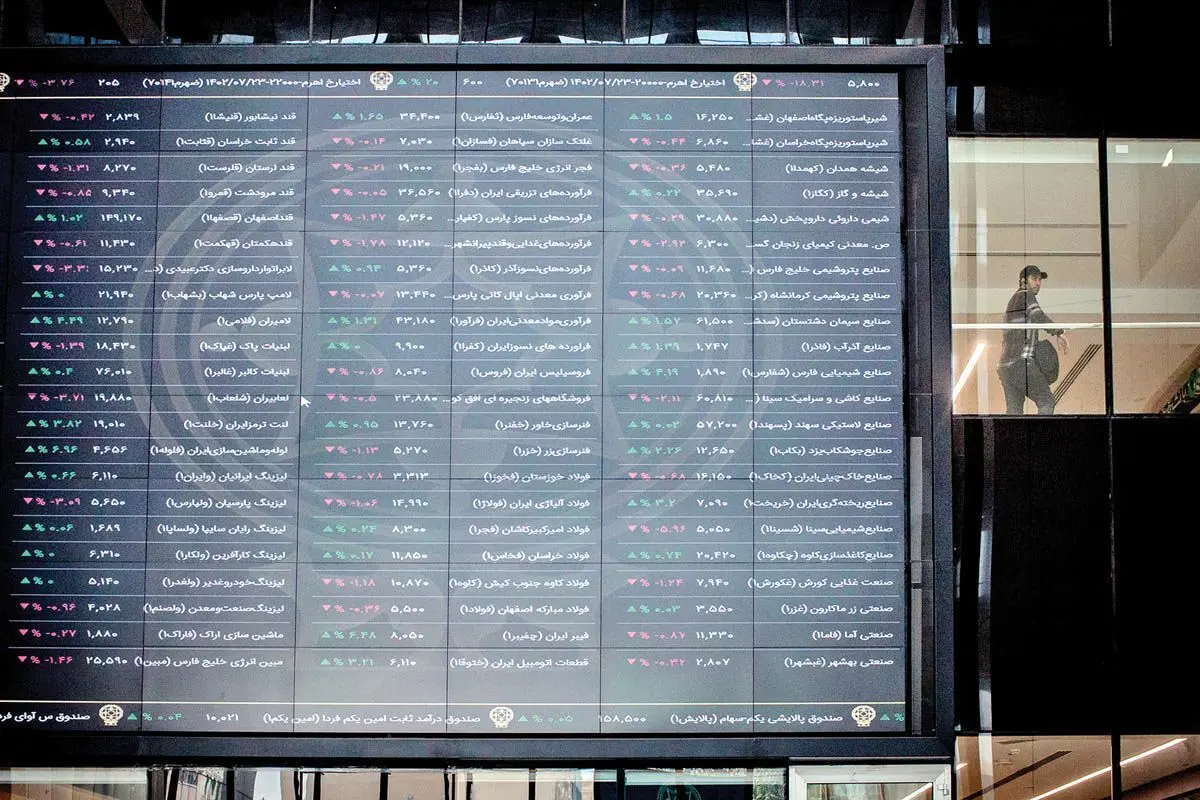 ۵,۸۰۰ ▼ % -۱۸.۳۱ اختیارخ اهرم-۲۰۰۰۰-۱۴۰۲/۰۷/۲۳ (ضهرم۷۰۱۳۱) ۶۰۰ ▲ % ۲۰ اختیارخ اهرم-۲۲۰۰۰-۱۴۰۲/۰۷/۲۳ (ضهرم۷۰۱۴۱) ۲۰۵ ▼ % -۳.۷۶
شیرپاستوریزه‌پگاه‌اصفهان (غش... ۱۶,۲۵۰ ▲ % ۱.۵ عمران‌وتوسعه‌فارس (ثفارس۱) ۳۴,۴۰۰ ▲ % ۱.۶۵ قند نیشابور (قنیشا۱) ۲,۸۳۹ ▼ % -۰.۴۲
شیرپاستوریزه‌پگاه‌خراسان (غشا... ۶,۸۶۰ ▼ % -۰.۴۴ غلتک سازان سپاهان (فسازان۱) ۷,۰۳۰ ▼ % -۰.۱۴ قند ثابت خراسان (قثابت۱) ۲,۹۴۰ ▲ % ۰.۵۸
شیشه همدان (کهمدا۱) ۵,۴۸۰ ▼ % -۰.۳۶ فجر انرژی خلیج فارس (بفجر۱) ۱۹,۰۰۰ ▼ % -۰.۲۱ قند لرستان (قلرست۱) ۸,۲۷۰ ▼ % -۱.۳۱
شیشه و گاز (کگاز۱) ۳۵,۶۹۰ ▲ % ۰.۲۲ فرآورده‌های تزریقی ایران (دفرا۱) ۳۶,۵۶۰ ▼ % -۰.۰۵ قند مرودشت (قمرو۱) ۹,۳۴۰ ▼ % -۰.۸۵
شیمی داروئی داروپخش (دشی... ۳۰,۸۸۰ ▼ % -۰.۲۹ فرآورده‌های نسوز پارس (کفپار... ۵,۳۶۰ ▼ % -۱.۴۷ قنداصفهان (قصفها۱) ۱۴۹,۱۷۰ ▲ % ۱.۰۲
ص. معدنی کیمیای زنجان گس... ۶,۳۰۰ ▼ % -۲.۹۳ فرآورده‌های‌غذایی‌وقندپیرانشهر... ۱۲,۱۲۰ ▼ % -۱.۷۸ قندهکمتان (قهکمت۱) ۱۱,۴۳۰ ▼ % -۰.۶۱
صنایع پتروشیمی خلیج فارس (... ۱۱,۶۸۰ ▼ % -۰.۰۹ فرآورده‌های‌نسوزآذر (کاذر۱) ۵,۳۶۰ ▲ % ۰.۹۴ لابراتوارداروسازی دکترعبیدی (د... ۱۵,۲۳۰ ▼ % -۳.۳
صنایع پتروشیمی کرمانشاه (کر... ۲۰,۳۶۰ ▼ % -۰.۶۸ فرآوری معدنی اپال کانی پارس... ۱۳,۴۴۰ ▼ % -۰.۰۷ لامپ پارس شهاب (بشهاب۱) ۲۱,۹۴۰ ▲ % ۰
صنایع سیمان دشتستان (سدش... ۶۱,۵۰۰ ▲ % ۱.۵۷ فرآوری‌موادمعدنی‌ایران (فرآور۱) ۴۳,۱۸۰ ▲ % ۱.۳۱ لامیران (فلامی۱) ۱۲,۷۹۰ ▲ % ۴.۴۹
صنایع آذرآب (فاذر۱) ۱,۷۴۷ ▲ % ۱.۳۹ فراورده های نسوزایران (کفرا۱) ۹,۹۰۰ ▲ % ۰ لبنیات پاک (غپاک۱) ۱۸,۴۳۰ ▼ % -۱.۳۹
صنایع شیمیایی فارس (شفارس۱) ۱,۸۹۰ ▲ % ۴.۱۹ فروسیلیس ایران (فروس۱) ۸,۰۴۰ ▼ % -۰.۸۶ لبنیات کالبر (غالبر۱) ۷۶,۰۱۰ ▲ % ۰.۴
صنایع کاشی و سرامیک سینا (... ۶۰,۸۱۰ ▼ % -۲.۱۱ فروشگاههای زنجیره ای افق کو... ۲۳,۸۸۰ ▼ % -۰.۵ لعابیران (شلعاب۱) ۱۹,۸۸۰ ▼ % -۳.۷۱
صنایع لاستیکی سهند (پسهند۱) ۵۷,۲۰۰ ▲ % ۰.۰۲ فنرسازی‌خاور (خفنر۱) ۱۳,۷۶۰ ▲ % ۰.۹۵ لنت ترمزایران (خلنت۱) ۱۹,۰۱۰ ▲ % ۳.۸۲
صنایع‌جوشکاب‌یزد (بکاب۱) ۱۲,۶۵۰ ▲ % ۲.۲۶ فنرسازی‌زر (خزر۱) ۵,۲۷۰ ▼ % -۱.۱۳ لوله‌وماشین‌سازی‌ایران (فلوله۱) ۴,۶۵۶ ▲ % ۶.۹۶
صنایع‌خاک‌چینی‌ایران (کخاک۱) ۱۶,۱۵۰ ▼ % -۰.۶۸ فولاد خوزستان (فخوز۱) ۳,۳۱۳ ▼ % -۰.۷۸ لیزینگ ایرانیان (وایران۱) ۶,۱۱۰ ▲ % ۰.۶۶
صنایع‌ریخته‌گری‌ایران (خریخت۱) ۷,۰۹۰ ▲ % ۳.۲ فولاد آلیاژی ایران (فولاژ۱) ۱۴,۹۹۰ ▼ % -۱.۰۶ لیزینگ پارسیان (ولپارس۱) ۵,۶۵۰ ▼ % -۳.۰۹
صنایع‌شیمیایی‌سینا (شسینا۱) ۵,۰۵۰ ▼ % -۵.۹۶ فولاد امیرکبیرکاشان (فجر۱) ۸,۳۰۰ ▲ % ۰.۲۴ لیزینگ رایان سایپا (ولساپا۱) ۱,۶۸۹ ▲ % ۰.۰۶
صنایع‌کاغذسازی‌کاوه (چکاوه۱) ۲۰,۴۲۰ ▲ % ۰.۷۴ فولاد خراسان (فخاس۱) ۱۱,۸۵۰ ▲ % ۰.۱۷ لیزینگ کارآفرین (ولکار۱) ۶,۳۱۰ ▲ % ۰
صنعت غذایی کورش (غکورش۱) ۷,۹۴۰ ▼ % -۱.۲۴ فولاد کاوه جنوب کیش (کاوه۱) ۱۰,۸۷۰ ▼ % -۱.۱۸ لیزینگ‌خودروغدیر (ولغدر۱) ۵,۱۴۰ ▲ % ۰
صنعتی زر ماکارون (غزر۱) ۳,۵۵۰ ▲ % ۰.۰۳ فولاد مبارکه اصفهان (فولاد۱) ۵,۵۰۰ ▼ % -۰.۳۶ لیزینگ‌صنعت‌ومعدن (ولصنم۱) ۴,۰۲۸ ▼ % -۰.۹۶
صنعتی آما (فاما۱) ۱۱,۳۳۰ ▼ % -۰.۸۷ فیبر ایران (چفیبر۱) ۸,۰۵۰ ▲ % ۶.۴۸ ماشین سازی اراک (فاراک۱) ۱,۸۸۰ ▼ % -۰.۲۷
صنعتی بهشهر (غبشهر۱) ۲,۸۰۷ ▼ % -۰.۳۲ قطعات اتومبیل ایران (ختوقا۱) ۶,۱۱۰ ▲ % ۳.۲۱ مبین انرژی خلیج فارس (مبین۱) ۲۵,۵۹۰ ▼ % -۱.۴۶
▲ % صندوق پالایشی یکم-سهام (پالایش۱) ۱۵۸,۵۰۰ ▲ % ۰.۰۵ صندوق درآمد ثابت امین یکم فردا (امین یکم۱) ۱۰,۰۲۱ ▲ % ۰.۰۴ صندوق س آوای فرد